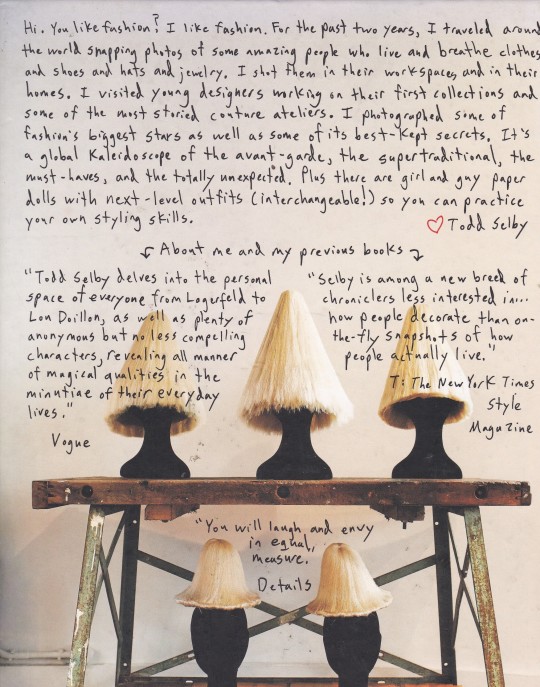 Hi. You like fashion? I like fashion. For the past two years, I traveled around
the world snapping photos of some amazing people who live and breathe clothes
and shoes and hats and jewelry. I shot them in their workspaces and in their
homes. I visited young designers working on their first collections and
some of the most storied couture ateliers. I photographed some of
fashion's biggest stars as well as some of its best-kept secrets. It's
a global kaleidoscope of the avant-garde, the supertraditional, the
must-haves, and the totally unexpected. Plus there are girl and guy paper
dolls with next-level outfits (interchangeable!) so you can practice
your own styling skills.
♡ Todd Selby
↙ About me and my previous books ↘
"Todd Selby delves into the personal
space of everyone from Lagerfeld to
Lou Doillon, as well as plenty of
anonymous but no less compelling
characters, revealing all manner
of magical qualities in the
minutiae of their everyday
lives."
Vogue
"Selby is among a new breed of
chroniclers less interested in...
how people decorate than on-
the-fly snapshots of how
people actually live."
T: The New York Times
Style
Magazine
"You will laugh and envy
in equal
measure.
Details